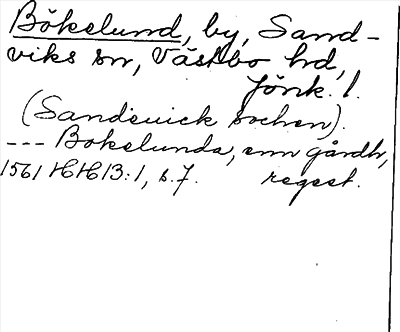 Bökelund, by, Sand-
viks sn, Västbo hd,
Jönk. l.
(Sandeuick sochen).
--- Bokelunda, enn gårdh,
1561 HH B:1, s.7. regest.